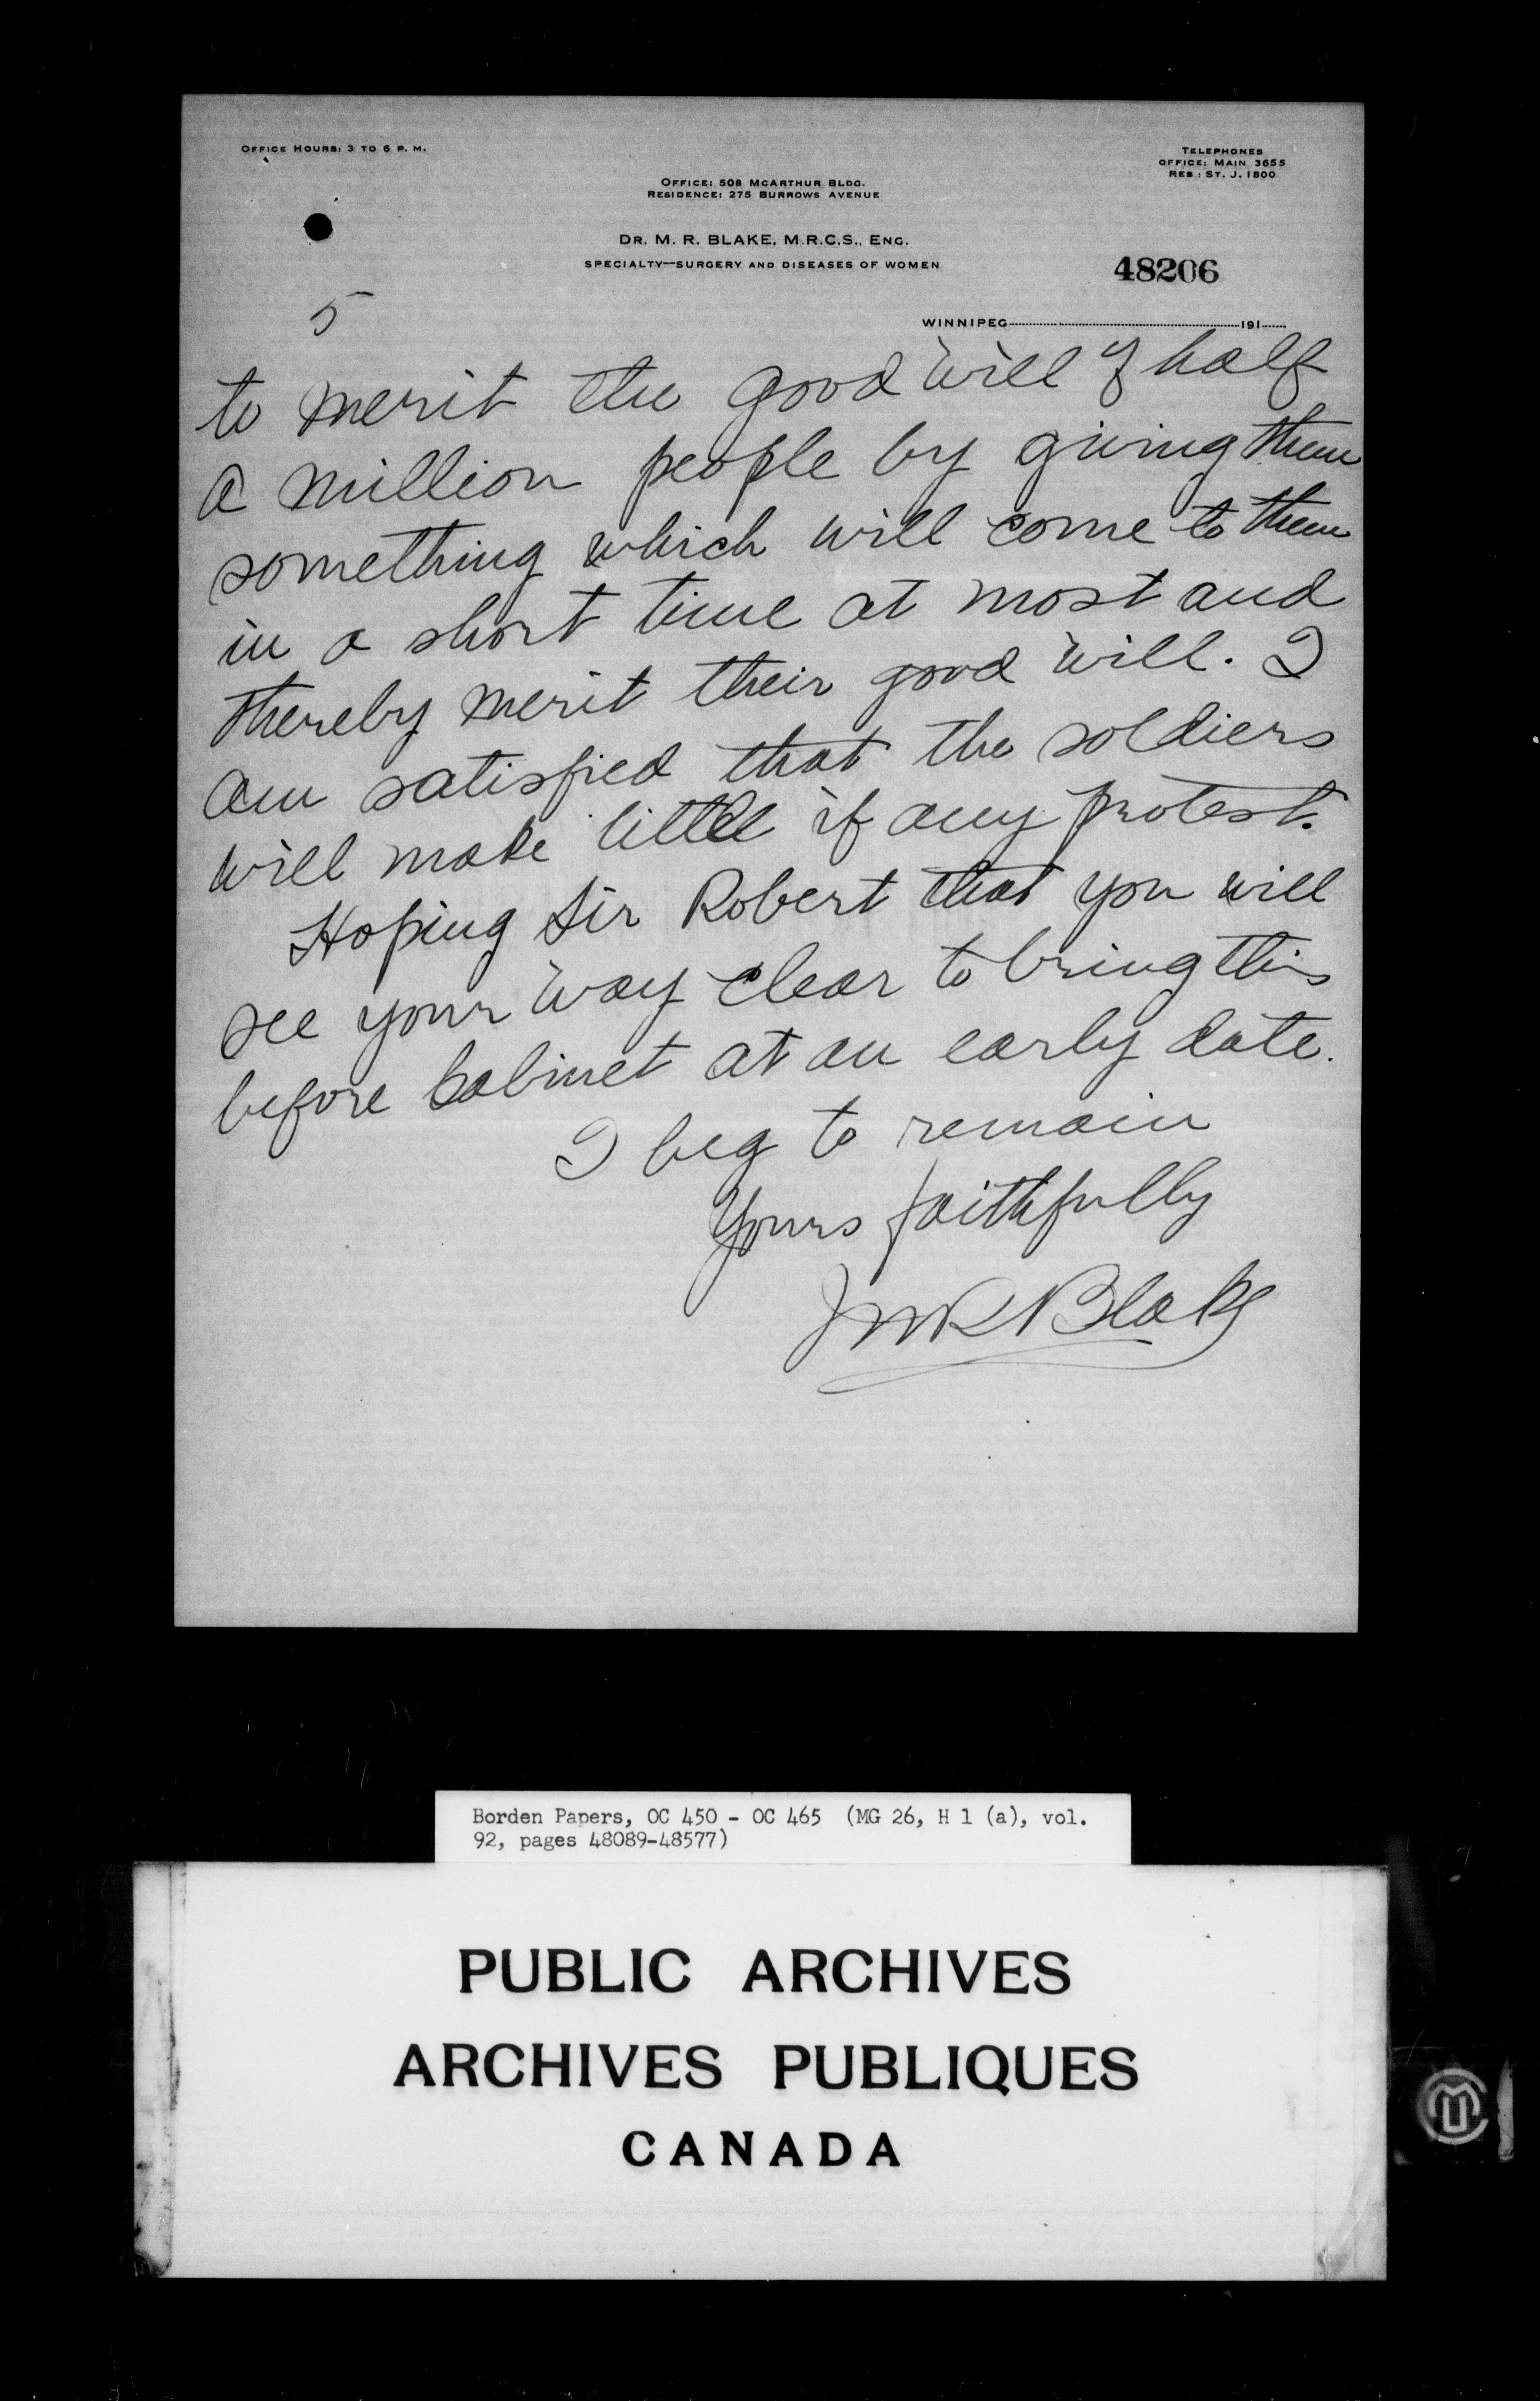 OFFICE HOURS: 3 TO 6 P. M.
TELEPHONES
OFFICE: MAIN 3655
RES: ST. J. 1800
OFFICE: 508 MCARTHUR BLDG.
RESIDENCE: 275 BURROWS AVENUE
DR. M. R. BLAKE, M.R.C.S., ENG.
SPECIALTY—SURGERY AND DISEASES OF WOMEN
48206
5
WINNIPEG 191
to merit the good will of half
a million people by giving them
something which will come to them
in a short time at most and
thereby merit their good will. I
am satisfied that the soldiers
will make little if any protest.
Hoping Sir Robert that you will
see your way clear to bring this
before Cabinet at an early date.
I beg to remain
Yours faithfully
M R Blake
Borden Papers, OC 450 - OC 465 (MG 26, H 1 (a), vol.
92, pages 48089-48577)
PUBLIC ARCHIVES
ARCHIVES PUBLIQUES
CANADA